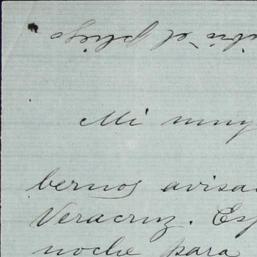 el pliego
Mi muy
bernos avisa
Veracruz. Es
noche para